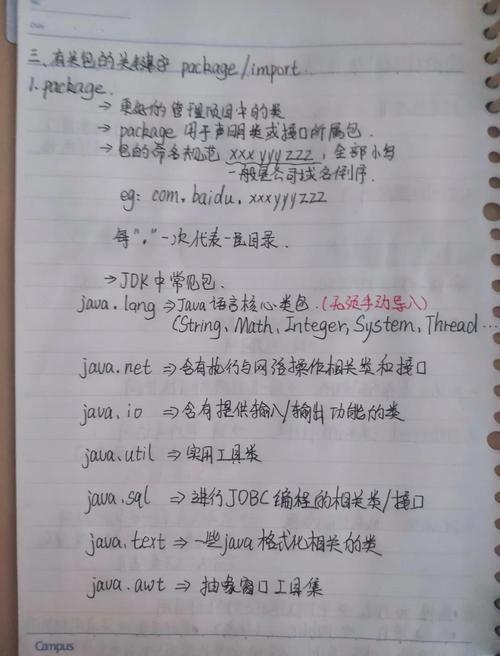 三、有关包的关键字 package/import
1. package.
→ 更好的管理项目中的类
→ package 用于声明类或接口所属包.
→ 包的命名规范 xxxyyyzzz, 全部小写
一般是公司域名倒序.
eg: com. baidu. xxxyyyzzz
每"."一次代表一层目录.
→JDK中常见包.
java.lang ⇒Java语言核心类包.(无须手动导入)
(String, Math, Integer, System, Thread...
java.net ⇒含有执行与网络操作相关类和接口
java.io ⇒含有提供输入/输出功能的类
java.util ⇒实用工具类
java.sql ⇒进行JDBC编程的相关类/接口
java.text ⇒一些java格式化相关的类
java.awt ⇒ 抽象窗口工具集
Campus